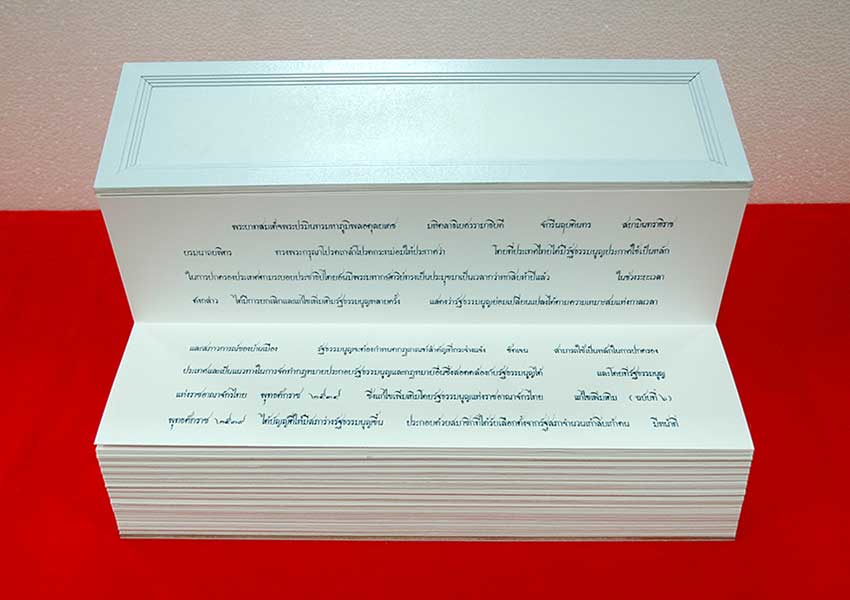 พระบาทสมเด็จพระปรมินทรมหาภูมิพลอดุลยเดช มหิตลาธิเบศรรามาธิบดี จักรีนฤบดินทร สยามินทราธิราช
บรมนาถบพิตร ทรงพระกรุณาโปรดเกล้าโปรดกระหม่อมให้ประกาศว่า โดยที่ประเทศไทยได้มีรัฐธรรมนูญประกาศใช้เป็นหลัก
ในการปกครองประเทศตามระบอบประชาธิปไตยอันมีพระมหากษัตริย์ทรงเป็นประมุขมาเป็นเวลากว่าหกสิบห้าปีแล้ว ในช่วงระยะเวลา
ดังกล่าว ได้มีการยกเลิกและแก้ไขเพิ่มเติมรัฐธรรมนูญหลายครั้ง แสดงว่ารัฐธรรมนูญย่อมเปลี่ยนแปลงได้ตามความเหมาะสมแห่งกาลเวลา
และสภาวการณ์ของบ้านเมือง รัฐธรรมนูญจะต้องกำหนดกฎเกณฑ์สำคัญที่กระจ่างแจ้ง ชัดเจน สามารถใช้เป็นหลักในการปกครอง
ประเทศและเป็นแนวทางในการจัดทำกฎหมายประกอบรัฐธรรมนูญและกฎหมายอื่นซึ่งสอดคล้องกับรัฐธรรมนูญได้ และโดยที่รัฐธรรมนูญ
แห่งราชอาณาจักรไทย พุทธศักราช ๒๕๓๔ ซึ่งแก้ไขเพิ่มเติมโดยรัฐธรรมนูญแห่งราชอาณาจักรไทย แก้ไขเพิ่มเติม (ฉบับที่ ๖)
พุทธศักราช ๒๕๓๙ ได้บัญญัติให้มีสภาร่างรัฐธรรมนูญขึ้น ประกอบด้วยสมาชิกที่ได้รับเลือกตั้งจากรัฐสภาจำนวนเก้าสิบเก้าคน มีหน้าที่